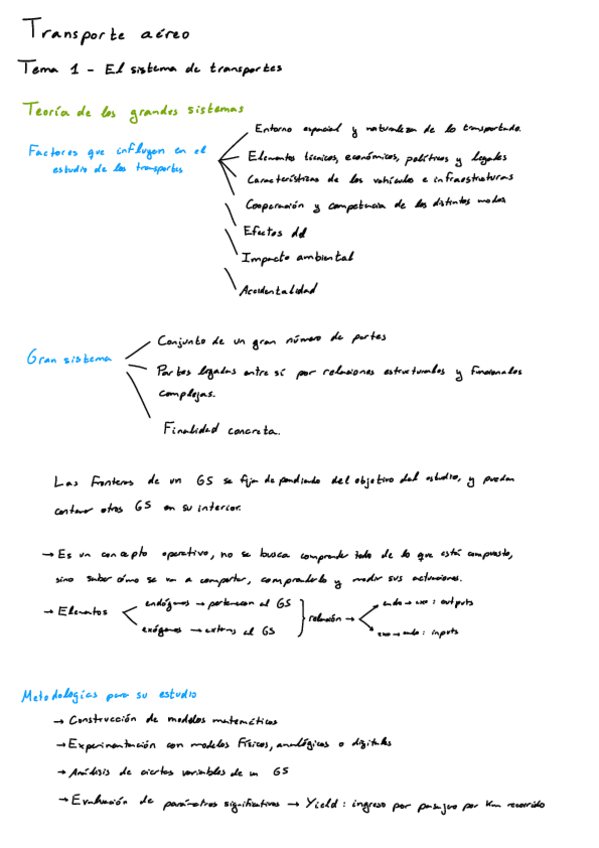 Transporte aéreo
Tema 1 - El sistema de transportes
Teoría de los grandes sistemas
Factores que influyen en el
estudio de los transportes
Entorno espacial y naturaleza de lo transportado.
Elementos técnicos, económicos, políticos y legales
Características de los vehículos e infraestructuras
Cooperación y competencia de los distintos modos
Efectos del
Impacto ambiental
Accidentalidad
Gran sistema
Conjunto de un gran número de partes
Partes ligadas entre sí por relaciones estructurales y funcionales
complejas.
Finalidad concreta.
Las fronteras de un GS se fijan dependiendo del objetivo del estudio, y pueden
contener otros GS en su interior.
→ Es un concepto operativo, no se busca comprender todo de lo que está compuesto,
sino saber cómo se va a comportar, comprenderlo y medir sus actuaciones.
→ Elementos
endógenos → pertenecen al GS
exógenos → externos al GS
relación →
endo → exo : outputs
exo → endo : inputs
Metodologías para su estudio
→ Construcción de modelos matemáticos
→ Experimentación con modelos físicos, analógicos o digitales
→ Análisis de ciertas variables de un GS
→ Evaluación de parámetros significativos → Yield : ingreso por pasajero por km recorrido